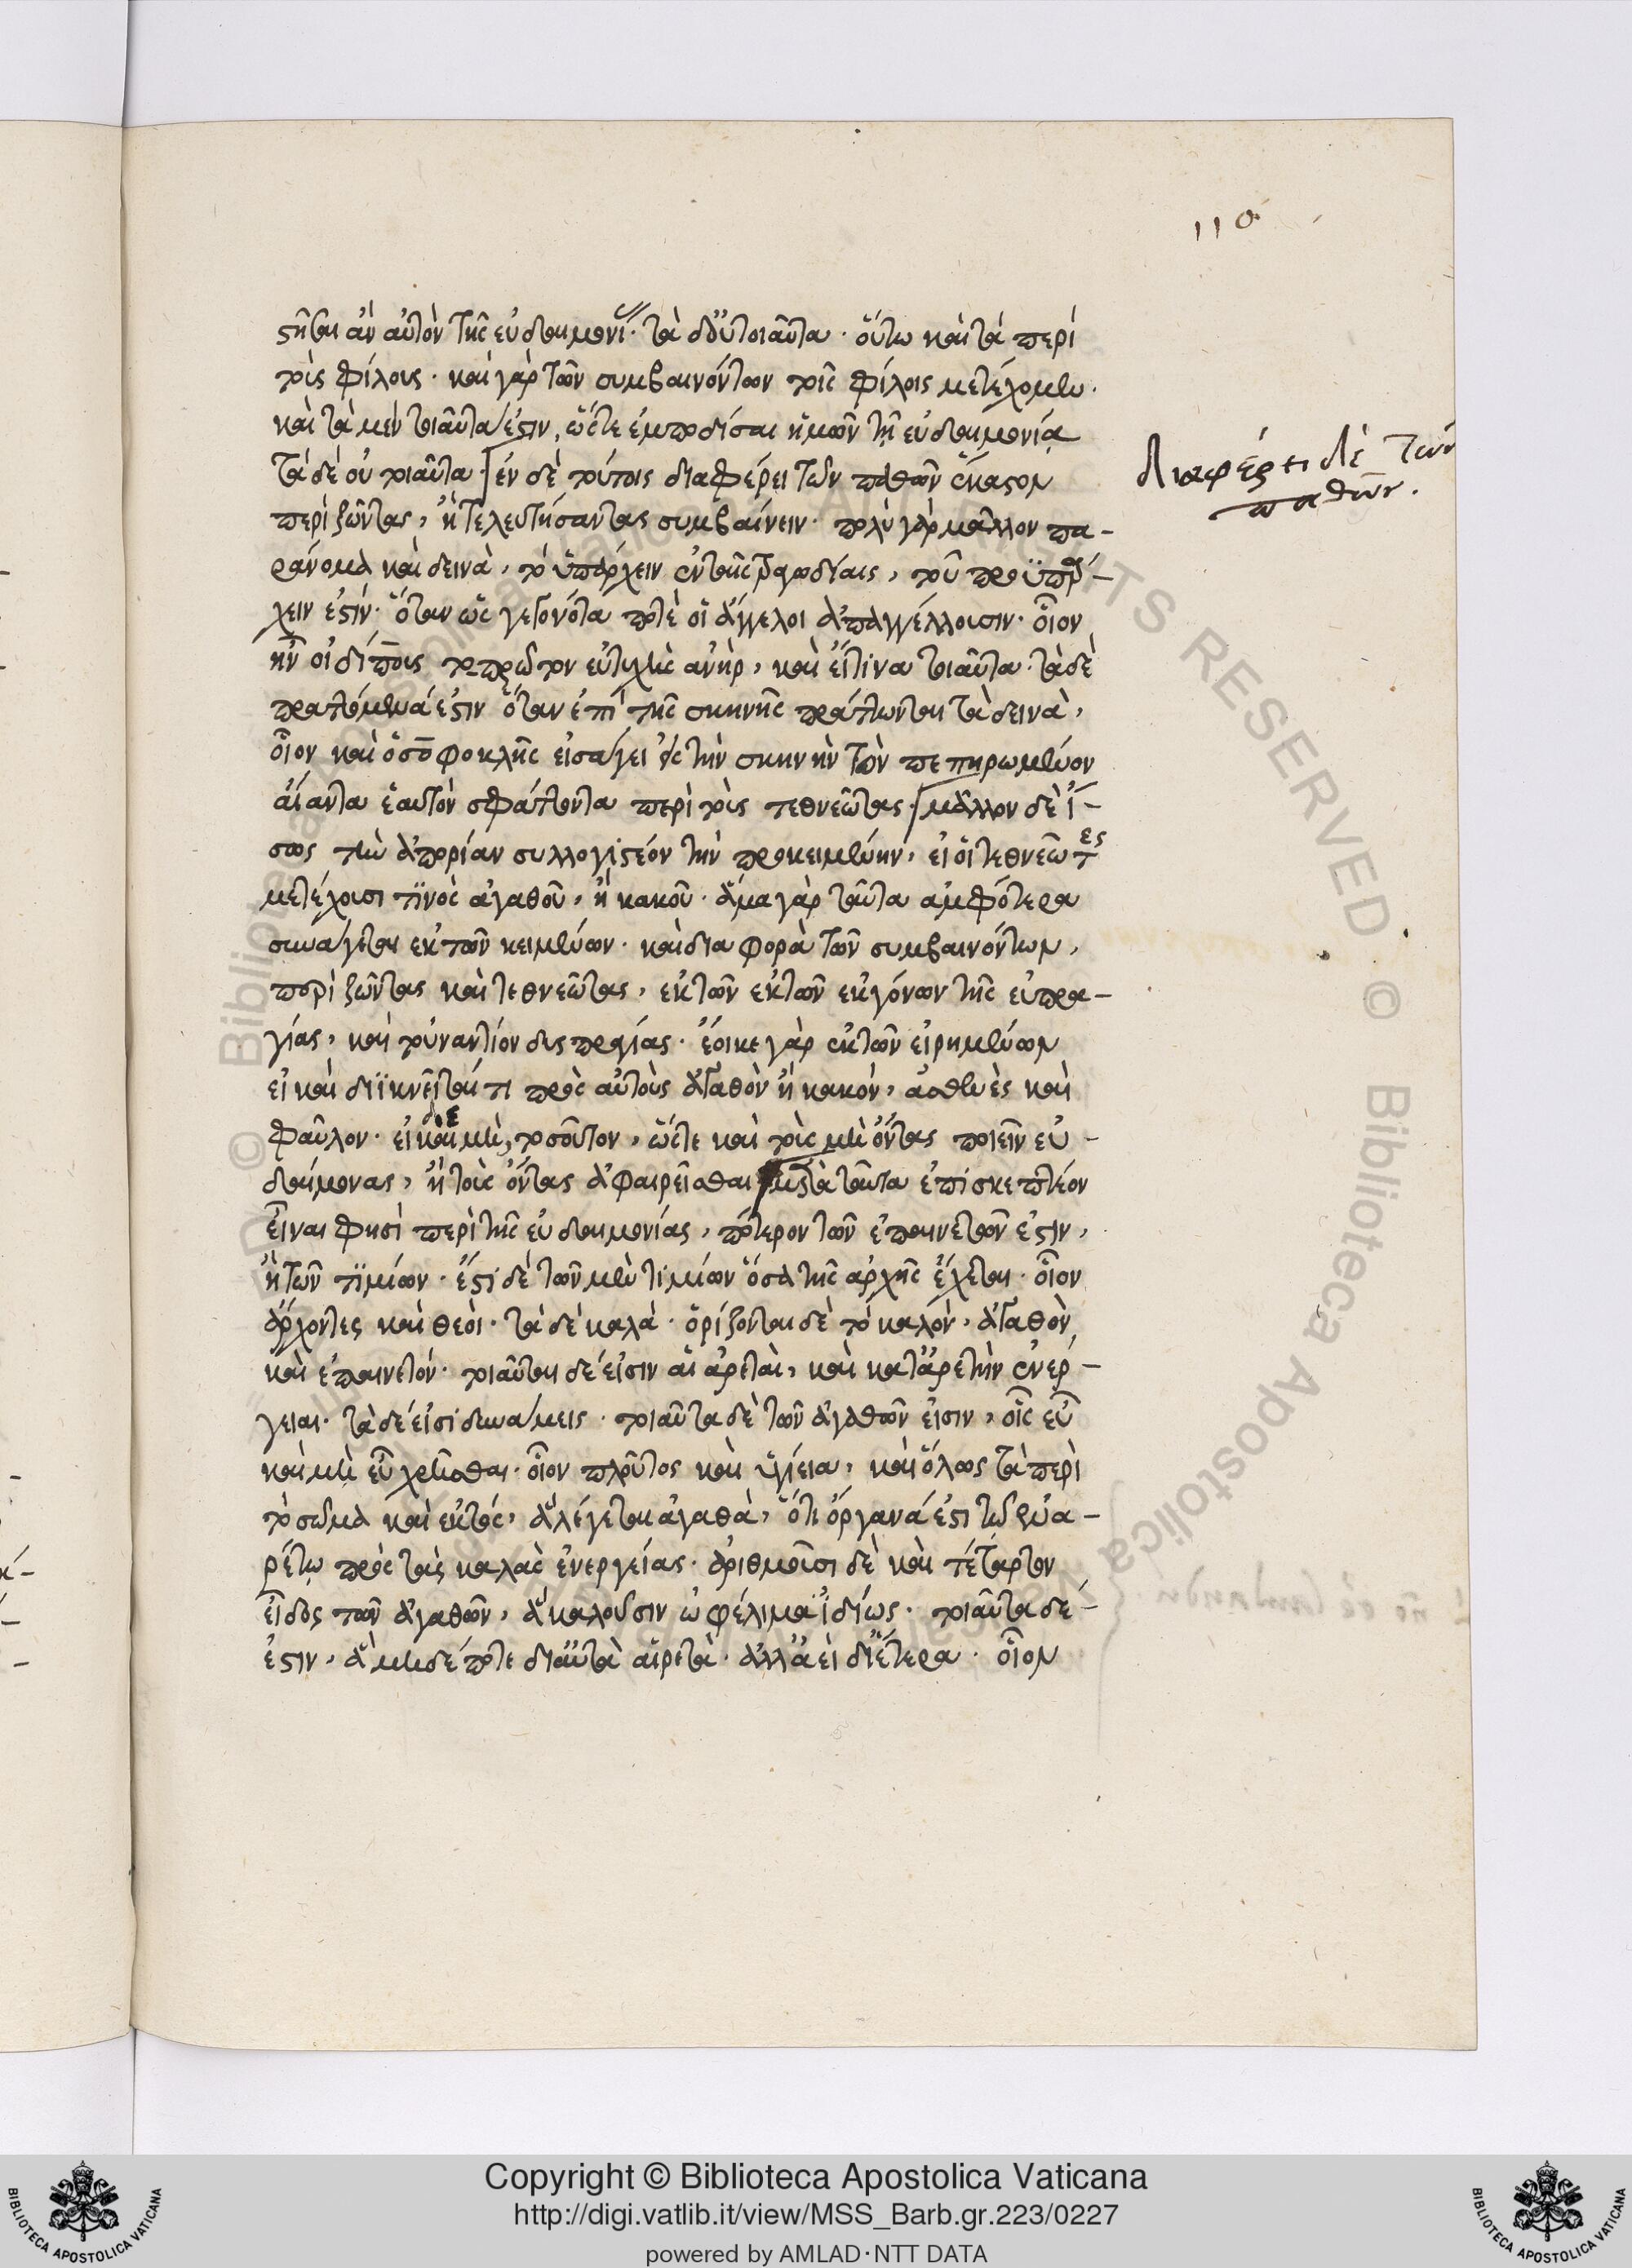 110
στῆσαι ἂν αὐτὸν τῆς εὐδαιμονί τὰ δὲ οὐ τοιαῦτα· οὕτω καὶ τὰ περὶ
τοὺς φίλους· καὶ γὰρ τῶν συμβαινόντων τοῖς φίλοις μετέχομεν·
καὶ τὰ μὲν τοιαῦτα ἐστιν, ὥστε ἐμποδίσαι ἡμῶν τῇ εὐδαιμονίᾳ
τὰ δὲ οὐ τοιαῦτα· ἐν δὲ τούτοις διαφέρει τῶν παθῶν ἕκαστον
Διαφέρει δὲ τῶν
παθῶν.
περὶ ζῶντας, ἢ τελευτήσαντας συμβαίνειν· πολὺ γὰρ μᾶλλον πα-
ράνομα καὶ δεινὰ, τὸ ὑπάρχειν ἐν ταῖς τραγωδίαις, τοῦ προϋπάρ-
χειν ἐστίν· ὅταν ὡς γεγονότα ποτὲ οἱ ἄγγελοι ἀπαγγέλλουσιν· οἷον
ἦν οἰδίπους τοπρῶτον εὐτυχὴς ἀνὴρ, καὶ εἴτινα τοιαῦτα· τὰ δὲ
πραττόμενά ἐστιν ὅταν ἐπὶ τῆς σκηνῆς πράττωνται τὰ δεινὰ,
οἷον καὶ ὁ σοφοκλῆς εἰσάγει ἐς τὴν σκηνὴν τὸν πεπηρωμένον
αἴαντα ἑαυτὸν σφάττοντα περὶ τοὺς τεθνεῶτας· μᾶλλον δὲ ἴ-
σως τὴν ἀπορίαν συλλογιστέον τὴν προκειμένην, εἰ οἱ τεθνεῶτες
μετέχουσι τινὸς ἀγαθοῦ, ἢ κακοῦ· ἅμα γὰρ ταῦτα ἀμφότερα
συνάγεται ἐκ τῶν κειμένων· καὶ διαφορὰ τῶν συμβαινόντων,
περὶ ζῶντας καὶ τεθνεῶτας, ἐκ τῶν ἐκ τῶν ἐκγόνων τῆς εὐπρα-
γίας, καὶ τοὐναντίον δυσπραγίας· ἔοικε γὰρ ἐκ τῶν εἰρημένων
εἰ καὶ διϊκνεῖται τι πρὸς αὐτοὺς ἀγαθὸν ἢ κακόν, ἀσθενὲς καὶ
φαῦλον· εἰ δὲ μὴ, τοσοῦτον, ὥστε καὶ τοὺς μὴ ὄντας ποιεῖν εὐ-
δαίμονας, ἢ τοὺς ὄντας ἀφαιρεῖσθαι μετὰ ταῦτα ἐπισκεπτέον
εἶναι φησὶ περὶ τῆς εὐδαιμονίας, πότερον τῶν ἐπαινετῶν ἐστιν,
ἢ τῶν τιμίων· ἔστι δὲ τῶν μὲν τιμίων ὅσα τῆς ἀρχῆς ἔχεται· οἷον
ἄρχοντες καὶ θεοὶ· τὰ δὲ καλὰ· ὁρίζονται δὲ τὸ καλὸν, ἀγαθὸν
καὶ ἐπαινετόν· τοιαῦται δέ εἰσιν αἱ ἀρεταὶ, καὶ κατ' ἀρετὴν ἐνέρ-
γειαι· τὰ δέ εἰσι δυνάμεις· τοιαῦτα δὲ τῶν ἀγαθῶν εἰσιν, οἷς εὖ
καὶ μὴ εὖ χρῆσθαι· οἷον πλοῦτος καὶ ὑγίεια, καὶ ὅλως τὰ περὶ
τὸ σῶμα καὶ ἐκτὸς, ἃ λέγεται ἀγαθὰ, ὅτι ὄργανά ἐστι τῷ ἐνα-
ρέτῳ πρὸς τὰς καλὰς ἐνεργείας· ἀριθμοῦσι δὲ καὶ τέταρτον
εἶδος τῶν ἀγαθῶν, ἃ καλοῦσιν ὠφέλιμα ἰδίως· τοιαῦτα δέ
ἐστιν, ἃ μηδέποτε δι' αὐτὰ αἱρετὰ· ἀλλ' ἀεὶ δι' ἕτερα· οἷον
Copyright © Biblioteca Apostolica Vaticana
http://digi.vatlib.it/view/MSS_Barb.gr.223/0227
powered by AMLAD·NTT DATA